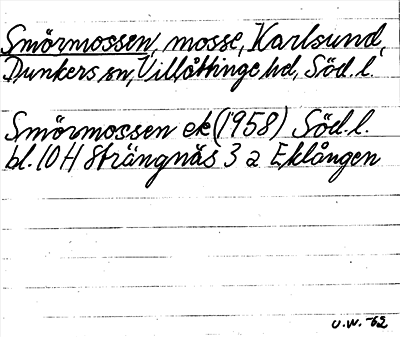 Smörmossen, mosse, Karlsund,
Dunkers sn, Villåttinge hd, Söd.l.
Smörmossen ek (1958) Söd.l.
bl. 10 H Strängnäs 3 a Eklången
U.W. -62